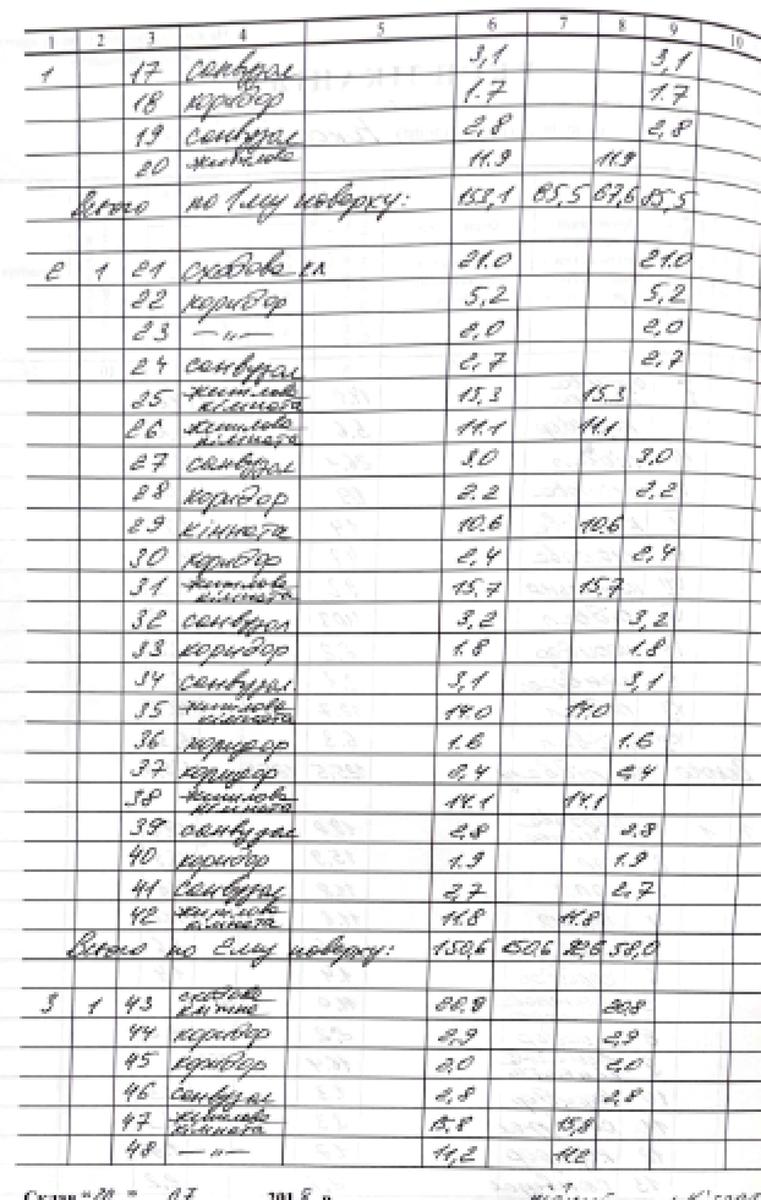 1 2 3 4 5 6 7 8 9 10
1 17 санвузол 3,1 3,1
18 коридор 1.7 1.7
19 санвузол 2,8 2,8
20 житлова 11.9 11.9
Всього по 1му поверху: 153,1 85,5 67,6 85,5
2 1 21 сходова кл 21.0 21.0
22 коридор 5,2 5,2
23 —„— 2,0 2,0
24 санвузол 2,7 2,7
25 житлова кімната 15,3 15.3
26 житлова кімната 11.1 11.1
27 санвузол 3,0 3,0
28 коридор 2.2 2,2
29 кімната 10.6 10.6
30 коридор 2,4 2,4
31 житлова кімната 15,7 15,7
32 санвузол 3,2 3,2
33 коридор 1.8 1.8
34 санвузол 3,1 3,1
35 житлова кімната 14.0 14.0
36 коридор 1.6 1.6
37 коридор 2,4 2,4
38 житлова кімната 14.1 14.1
39 санвузол 2,8 2,8
40 коридор 1.9 1.9
41 санвузол 2,7 2,7
42 житлова кімната 11.8 11.8
Всього по 2му поверху: 150,6 150,6 58,0
3 1 43 сходова клітина 20.8 20.8
44 коридор 2,9 2,9
45 коридор 2,0 2,0
46 санвузол 2,8 2,8
47 житлова кімната 15,8 15,8
48 —„— 11,2 11.2